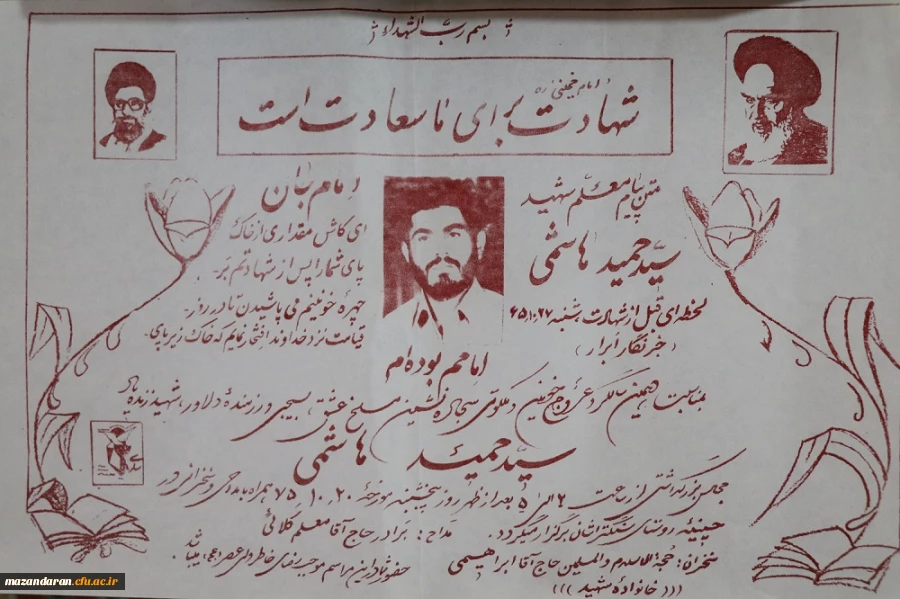 بسم رب الشهداء
امام خمینی ره
شهادت برای ما سعادت است
متن پیام معلم شهید
سید حمید هاشمی
لحظه‌ای قبل از شهادت شنبه ۶۵،۱۰،۲۷
(خبرنگار ابرار)
امام بان
ای کاش مقداری از خاک
پای شما را پس از شهادتم بر
چهره خونینم می پاشیدن تا در روز
قیامت نزد خداوند افتخار نمایم که خاک زیر پای
امامم بوده‌ام
بمناسبت دهمین سالگرد عروج خونین و ملکوتی سجاده نشین مسلخ عشق، بسیجی و رزمنده دلاور، شهید زنده یاد
سید حمید هاشمی
مجلس بزرگداشتی از ساعت ۲ الی ۵ بعد از ظهر روز پنجشنبه مورخهٔ ۷۵،۱۰،۲۰ همراه با مداحی و سخنرانی در
حسینیه روستای برگزار میگردد. مداح: برادر حاج آقا معلم کلائی
سخنران: حجة الاسلام والمسلمین حاج آقا ابراهیمی
حضور شما در این مراسم موجب رضای خاطر ولی عصر (عج) میباشد.
((( خانوادهٔ شهید )))
mazandaran.cfu.ac.ir